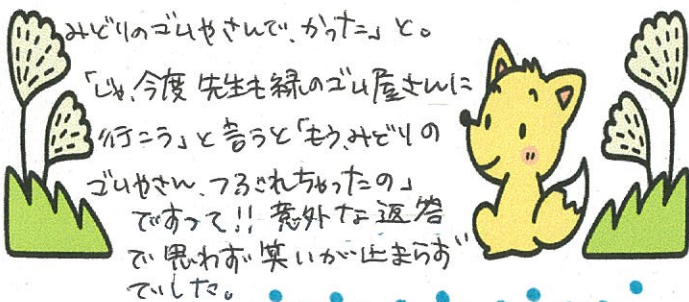 みどりのゴムやさんで、かった」と。
「じゃ、今度 先生も緑のゴム屋さんに
行こう」と言うと「もう、みどりの
ゴムやさん、つぶれちゃったの」
ですって!! 意外な返答
で思わず笑いが止まらず
でした。